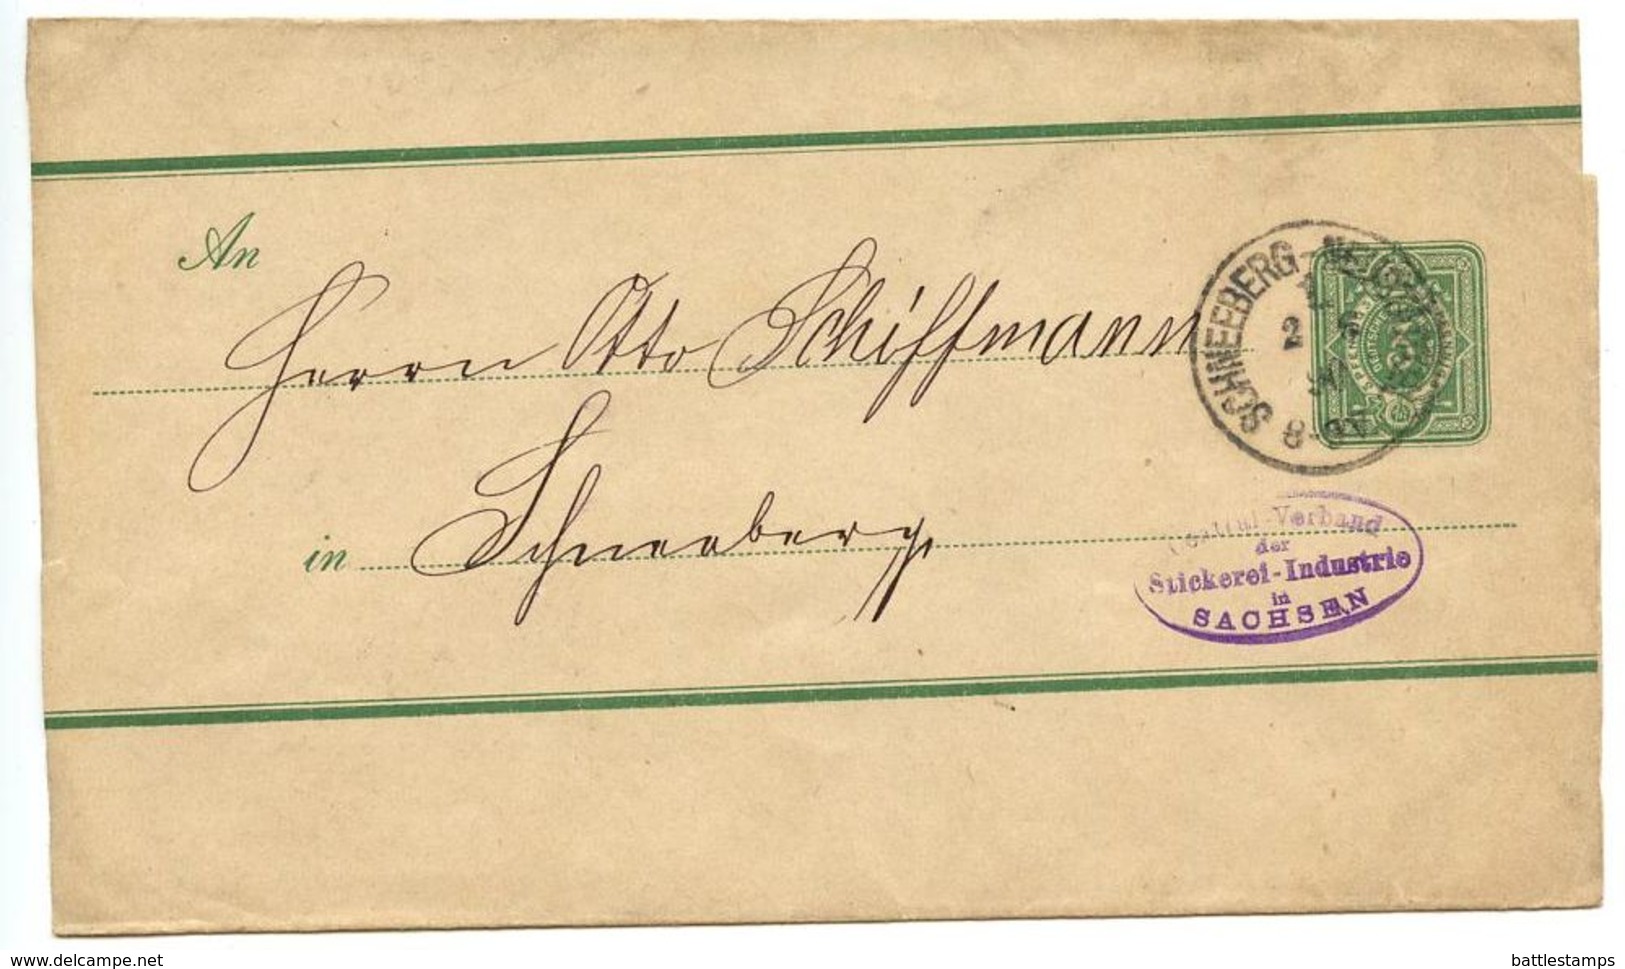 An
Herrn Otto Schiffmann
in Schneeberg.
SCHNEEBERG-NEUSTÄDTEL
2
90
8-9V.
3
Central-Verband
der
Stickerei-Industrie
in
SACHSEN
delcampe.net
battlestamps